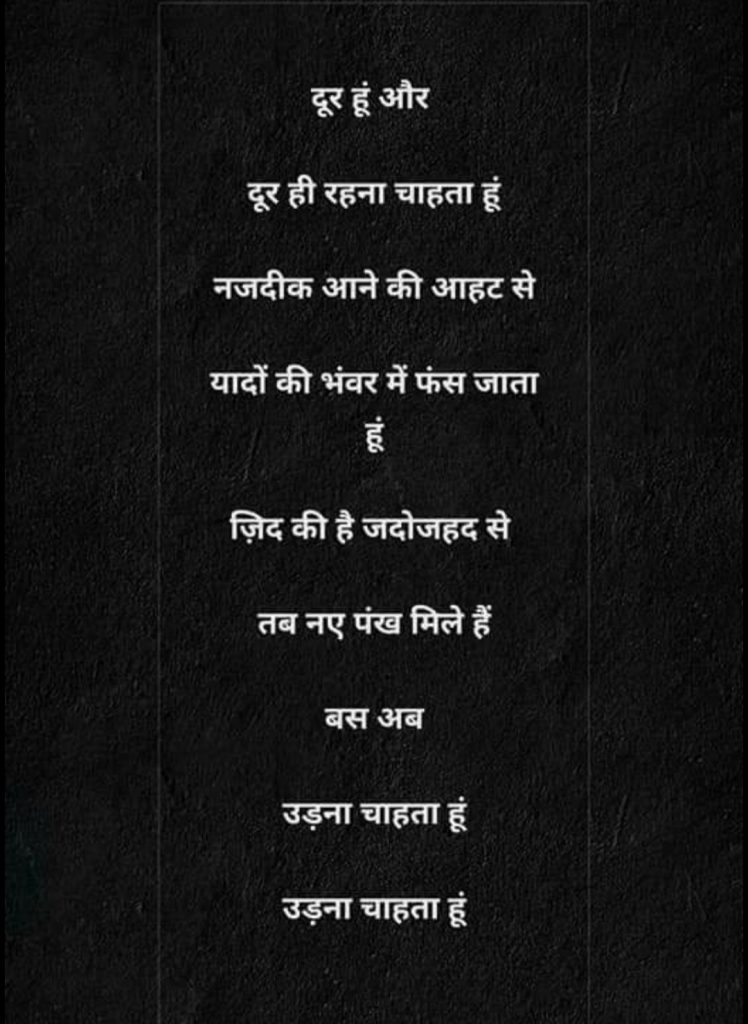 दूर हूं और
दूर ही रहना चाहता हूं
नजदीक आने की आहट से
यादों की भंवर में फंस जाता
हूं
ज़िद की है जदोजहद से
तब नए पंख मिले हैं
बस अब
उड़ना चाहता हूं
उड़ना चाहता हूं